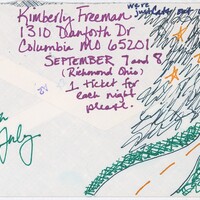 Kimberly Freeman
1310 Danforth Dr
Columbia MO 65201
SEPTEMBER 7 and 8
(Richmond Ohio)
1 ticket for
each night
please.
we're
just
July